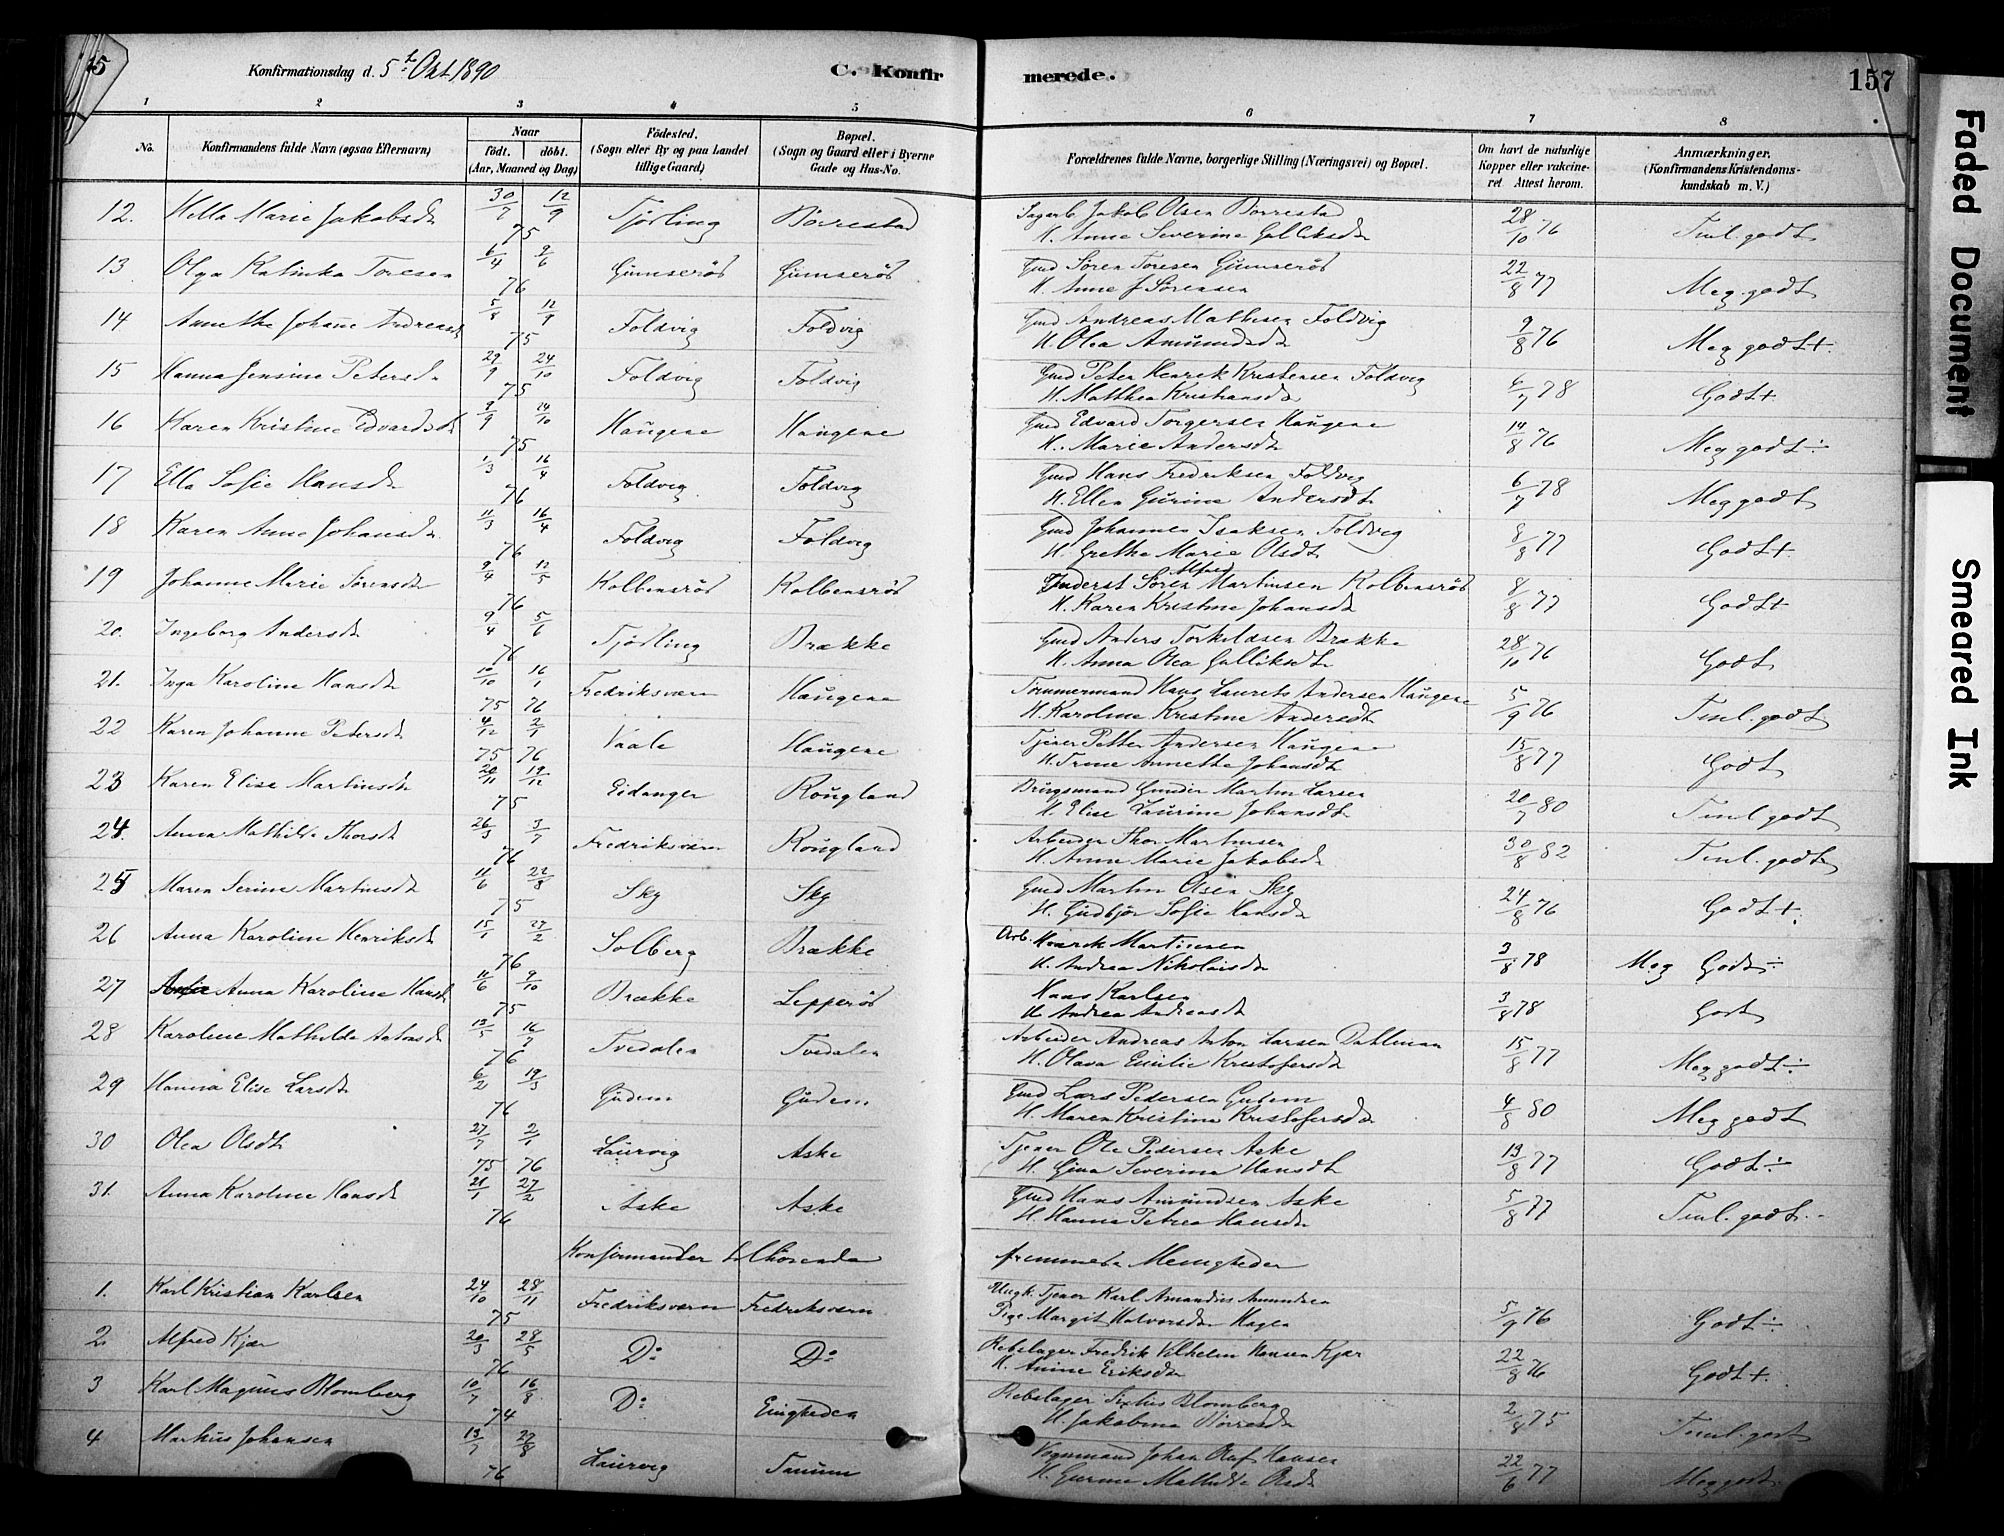 15 Konfirmationsdag d. 5t Okt 1890 C. Konfir merede. 157
1 2 3 4 5 6 7 8
No. Konfirmandens fulde Navn (ogsaa Efternavn) Naar födt. döbt. (Aar, Maaned og Dag) Födested. (Sogn eller By og paa Landet tillige Gaard) Bopæl. (Sogn og Gaard eller i Byerne Gade og Hus-No. Forældrenes fulde Navne, borgerlige Stilling (Næringsvei) og Bopæl. Om havt de naturlige Kopper eller vakcineret Attest herom. Anmærkninger. (Konfirmandens Kristendomskundskab m. V.)
12. Marie Jakobsdt 30/7 12/9 75 Tjölling Børrestad Jakob Olsen Børrestad 28/10 76 Tml. godt
H. Anne Severine Gulliksdt
13 Olga Katinka Toresen 6/4 9/6 76 Gumseröd Gumseröd Gmd Sören Toresen Gumseröd 22/8 77 Meg godt
H. Anne J Sörensen
14 Annethe Johane Andreasdt 5/8 12/9 75 Foldvig Foldvig Gmd Andreas Mathisen Foldvig 9/8 76 Meg godt+
H. Olea Amundsdt
15 Hanna Jensine Petersdt 29/9 24/10 75 Foldvig Foldvig Gmd Peter Henrik Kristensen Foldvig 6/7 78 Godt+
H. Matthea Kristiansdt
16 Karen Kristine Edvardsdt 9/9 24/10 75 Haugene Haugene Gmd Edvard Torgersen Haugene 14/8 76 Meg godt÷
H. Marie Andersdt
17 Ella Sofie Hansdt 1/3 16/4 76 Foldvig Foldvig Gmd Hans Fredriksen Foldvig 6/7 78 Meg godt
H. Ellen Gurine Andersdt
18 Karen Anne Johansdt 11/3 16/4 76 Foldvig Foldvig Gmd Johannes Isaksen Foldvig 8/8 77 Godt+
H. Grethe Marie Olsdt
19 Johanne Marie Sörensdt 9/4 12/5 76 Kolbensröd Kolbensröd Inderst Sören Alfred Martinsen Kolbensröd 8/8 77 Godt+
H. Karen Kristine Johansdt
20. Ingeborg Andersdt 9/4 5/6 76 Tjölling Brække Gmd Anders Torkildsen Brække 28/10 76 Godt
H. Anna Olea Gulliksdt
21. Inga Karoline Hansdt 10/10 75 16/1 76 Fredriksværn Haugene Tömmermand Hans Laurets Andersen Haugene 5/9 76 Tml. godt
H. Karoline Kristine Andersdt
22 Karen Johanne Petersdt 4/12 75 2/1 76 Vaale Haugene Tjener Petter Andersen Haugene 15/8 77 Godt
H. Trine Annethe Johansdt
23 Karen Elise Martinsdt 20/11 19/12 75 Eidanger Rougland Brugsmand Gunder Martin Larsen 20/7 80 Tml godt
H. Elise Laurine Johansdt
24. Anna Mathilde Thorsdt 26/3 3/7 76 Fredriksværn Rougland Arbeider Thor Martinsen 30/8 82 Tml. godt
H. Anne Marie Jakobsdt
25 Maren Serine Martinsdt 11/6 22/8 75 Sky Sky Gmd Martin Olsen Sky 24/8 76 Godt+
H. Gudbjör Sofie Hansdt
26 Anna Karoline Henriksdt 15/1 27/2 76 Solberg Brække Arb. Henrik Martinsen 3/8 78 Meg Godt÷
H. Andrea Nikolaisdt
27 Anna Karoline Hansdt 11/6 9/10 75 Brække Lepperöd Hans Karlsen 3/8 78 Godt
H. Andrea Andreasdt
28 Karoline Mathilde Antonsdt 13/5 16/7 76 Tvedalen Tvedalen Arbeider Andreas Anton Larsen Dahlman 15/8 77 Meg godt÷
H. Olava Emilie Kristofersdt
29 Hanna Elise Larsdt 6/2 19/3 76 Gudem Gudem Gmd Lars Pedersen Gudem 4/8 80 Meg godt
H. Maren Kristine Kristofersdt
30 Olea Olsdt 27/7 75 2/1 76 Laurvig Aske Tjener Ole Pedersen Aske 13/8 77 Godt÷
H. Gina Severine Hansdt
31. Anna Karoline Hansdt 21/1 27/2 76 Aske Aske Gmd Hans Amundsen Aske 5/8 77 Tml. godt
H. Hanna Petrea Hansdt
Konfirmander tilhörende fremmede Menigheder
1. Karl Kristian Karlsen 24/10 28/11 75 Fredriksværn Fredriksværn Ungk. Tjener Karl Amandus Amundsen 5/9 76 Godt÷
Pige Margit Halvorsdt Hagen
2 Alfred Kjær 20/3 28/5 76 Do Do Rebslager Fredrik Vilhelm Hansen Kjær 22/8 76 Godt+
H. Anine Eriksdt
3 Karl Magnus Blomberg 10/7 16/8 74 Do Eingheden Rebslager Blomberg 2/8 75 Tml. godt
H. Jakobine Börresdt
4 Markus Johansen 13/7 27/8 76 Laurvig Tanum Vognmand Johan Oluf Hansen 22/6 77 Meg godt
H. Gurine Mathilde Olsdt
Faded Document
Smeared Ink